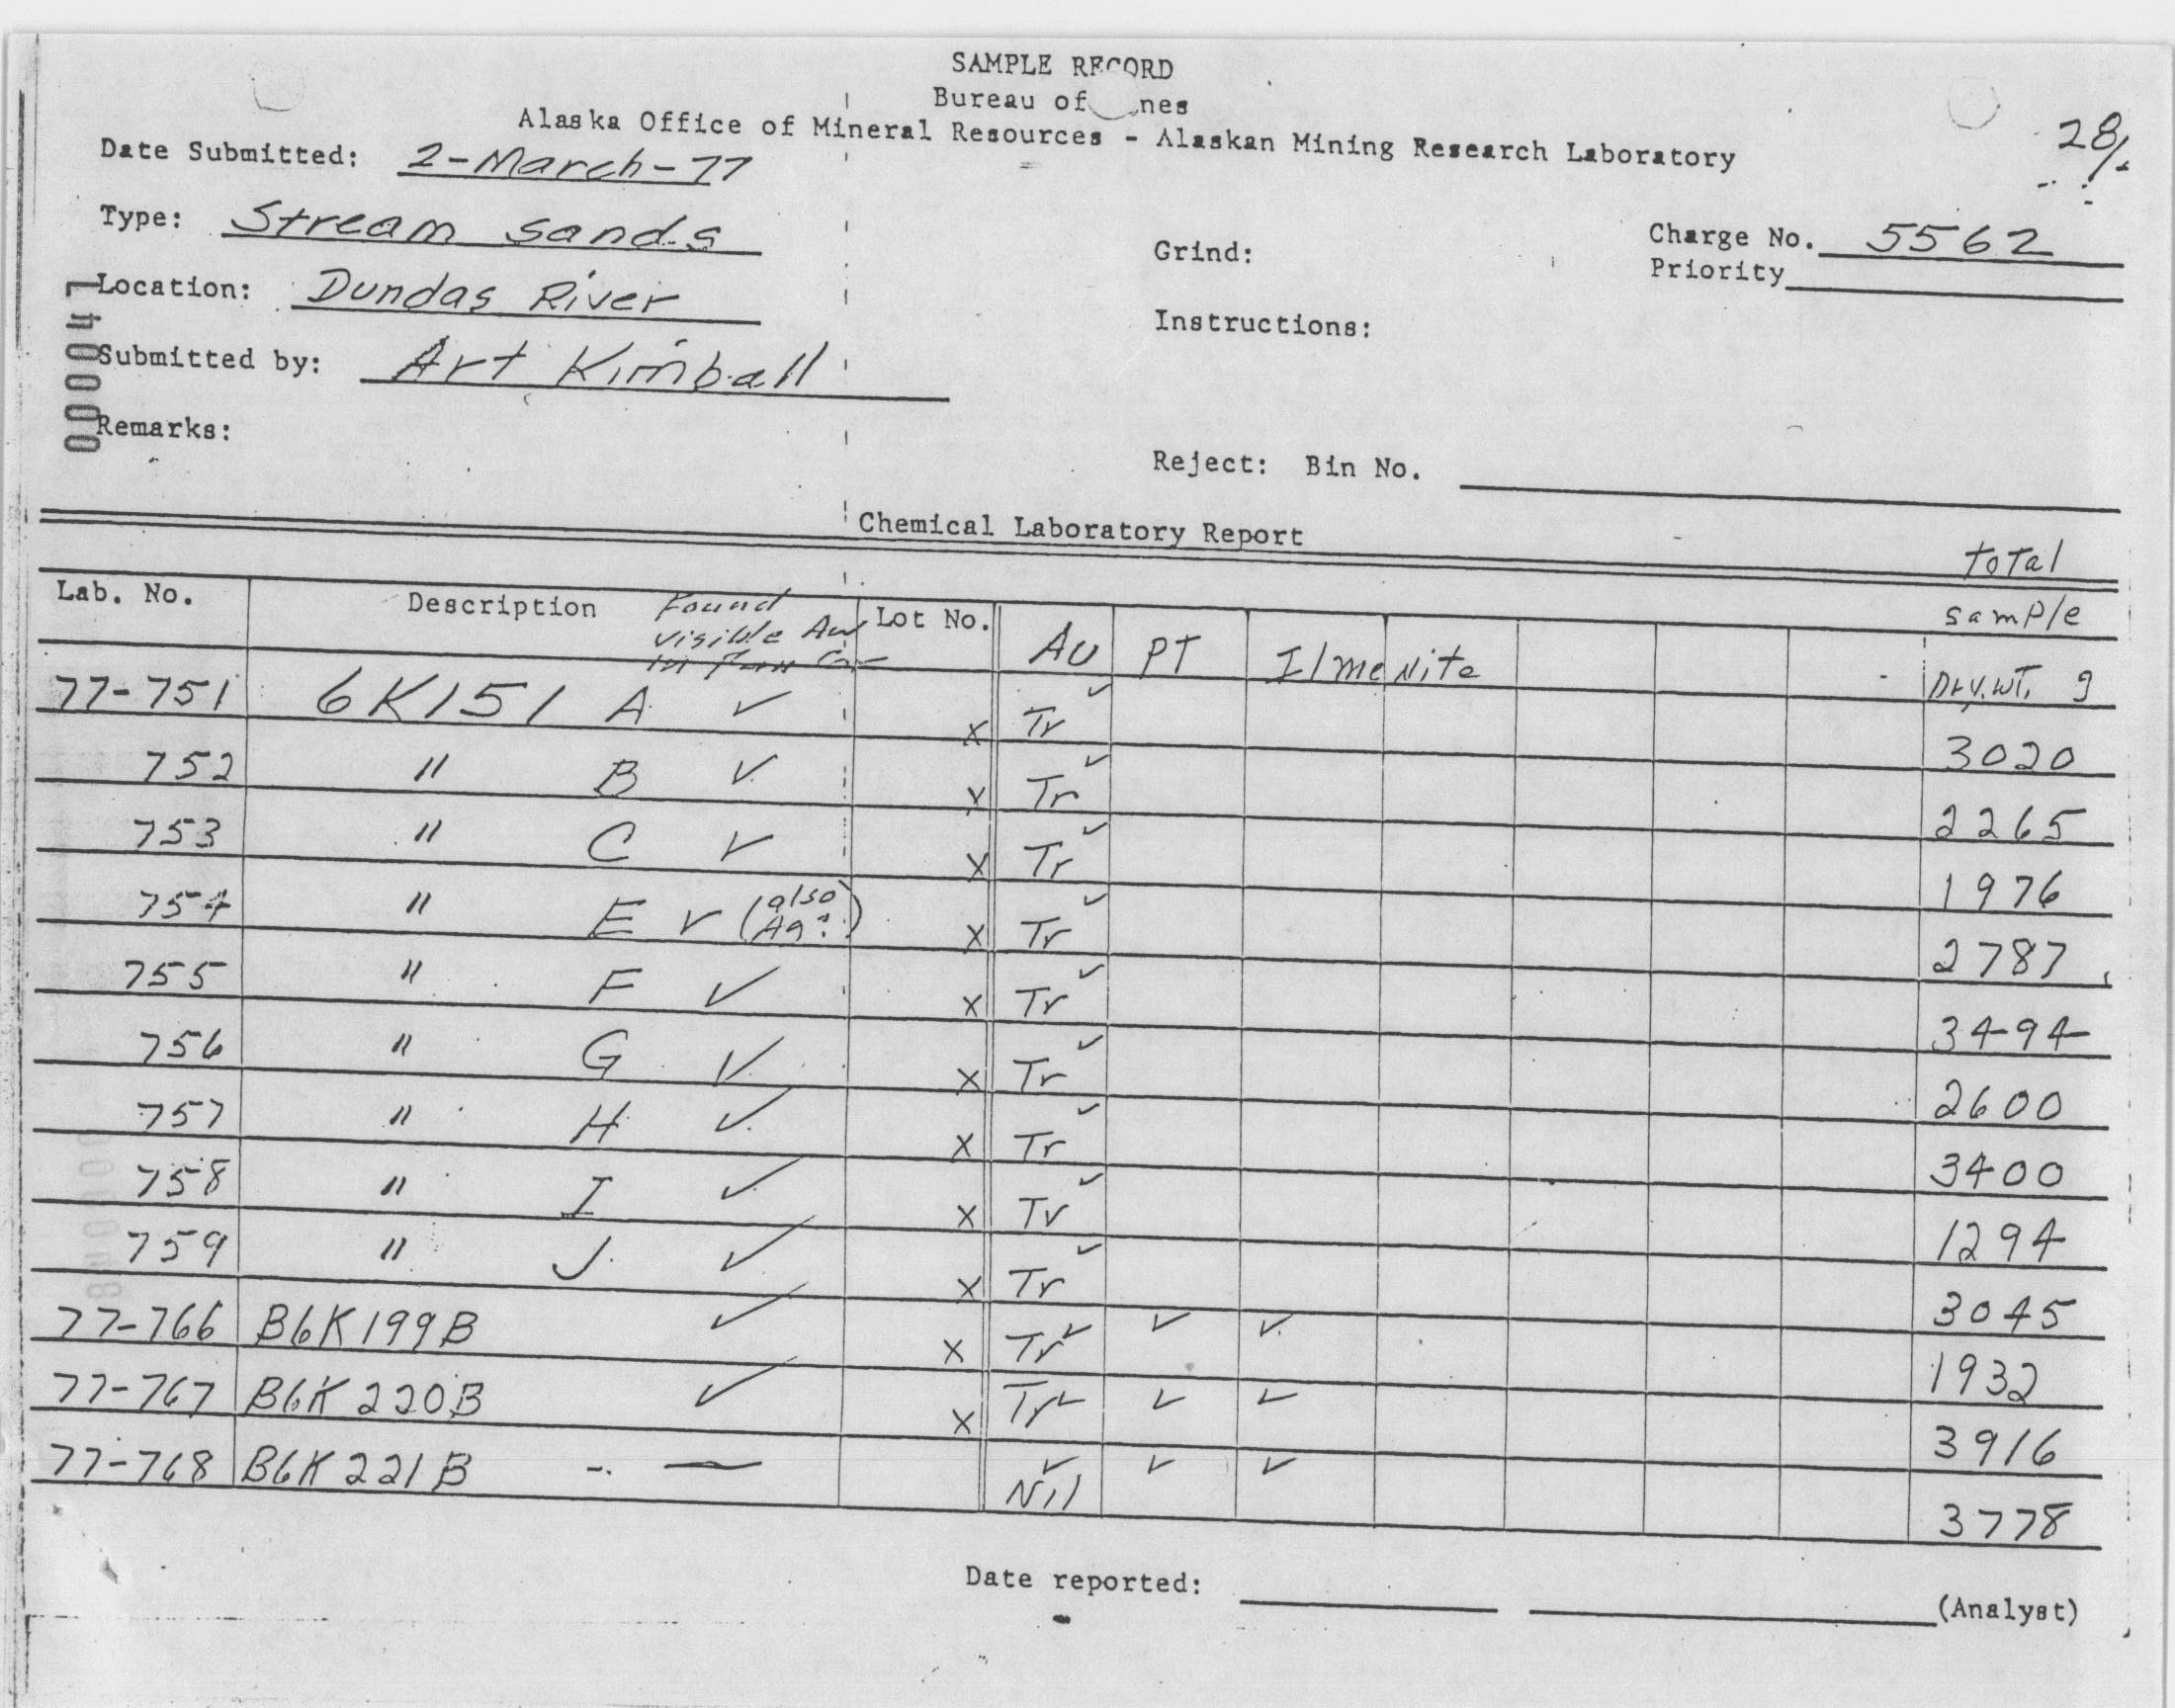 SAMPLE RECORD
Bureau of nes
Alaska Office of Mineral Resources - Alaskan Mining Research Laboratory
28/
Date Submitted: 2-March-77
Type: Stream sands
Grind:
Charge No. 5562
Priority
Location: Dundas River
Instructions:
Submitted by: Art Kimball
Remarks:
Reject: Bin No.
Chemical Laboratory Report
total
Lab. No. Description Found visible Au in Pan Lot No. Au PT Ilmenite sample Dry.WT. g
77-751 6K151 A ✓ x Tr ✓ 3020
752 " B ✓ x Tr ✓ 2265
753 " C ✓ x Tr ✓ 1976
754 " E ✓ (also Ag?) x Tr ✓ 2787
755 " F ✓ x Tr ✓ 3494
756 " G ✓ x Tr ✓ 2600
757 " H ✓ x Tr ✓ 3400
758 " I ✓ x Tr ✓ 1294
759 " J ✓ x Tr ✓ 3045
77-766 B6K199B ✓ x Tr ✓ ✓ ✓ 1932
77-767 B6K220B ✓ x Tr ✓ ✓ ✓ 3916
77-768 B6K221B - — Nil ✓ ✓ ✓ 3778
Date reported: (Analyst)